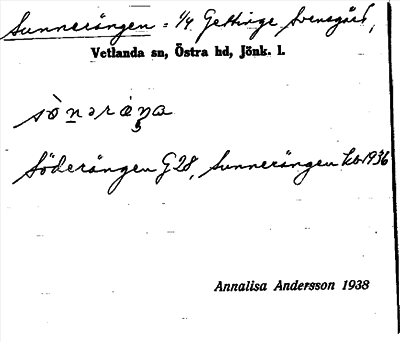 Sunnerängen = 1/4 Gettinge Svensgård,
Vetlanda sn, Östra hd, Jönk. l.
sò̀nəräŋa
Söderängen G28, Sunnerängen kb 1936
Annalisa Andersson 1938